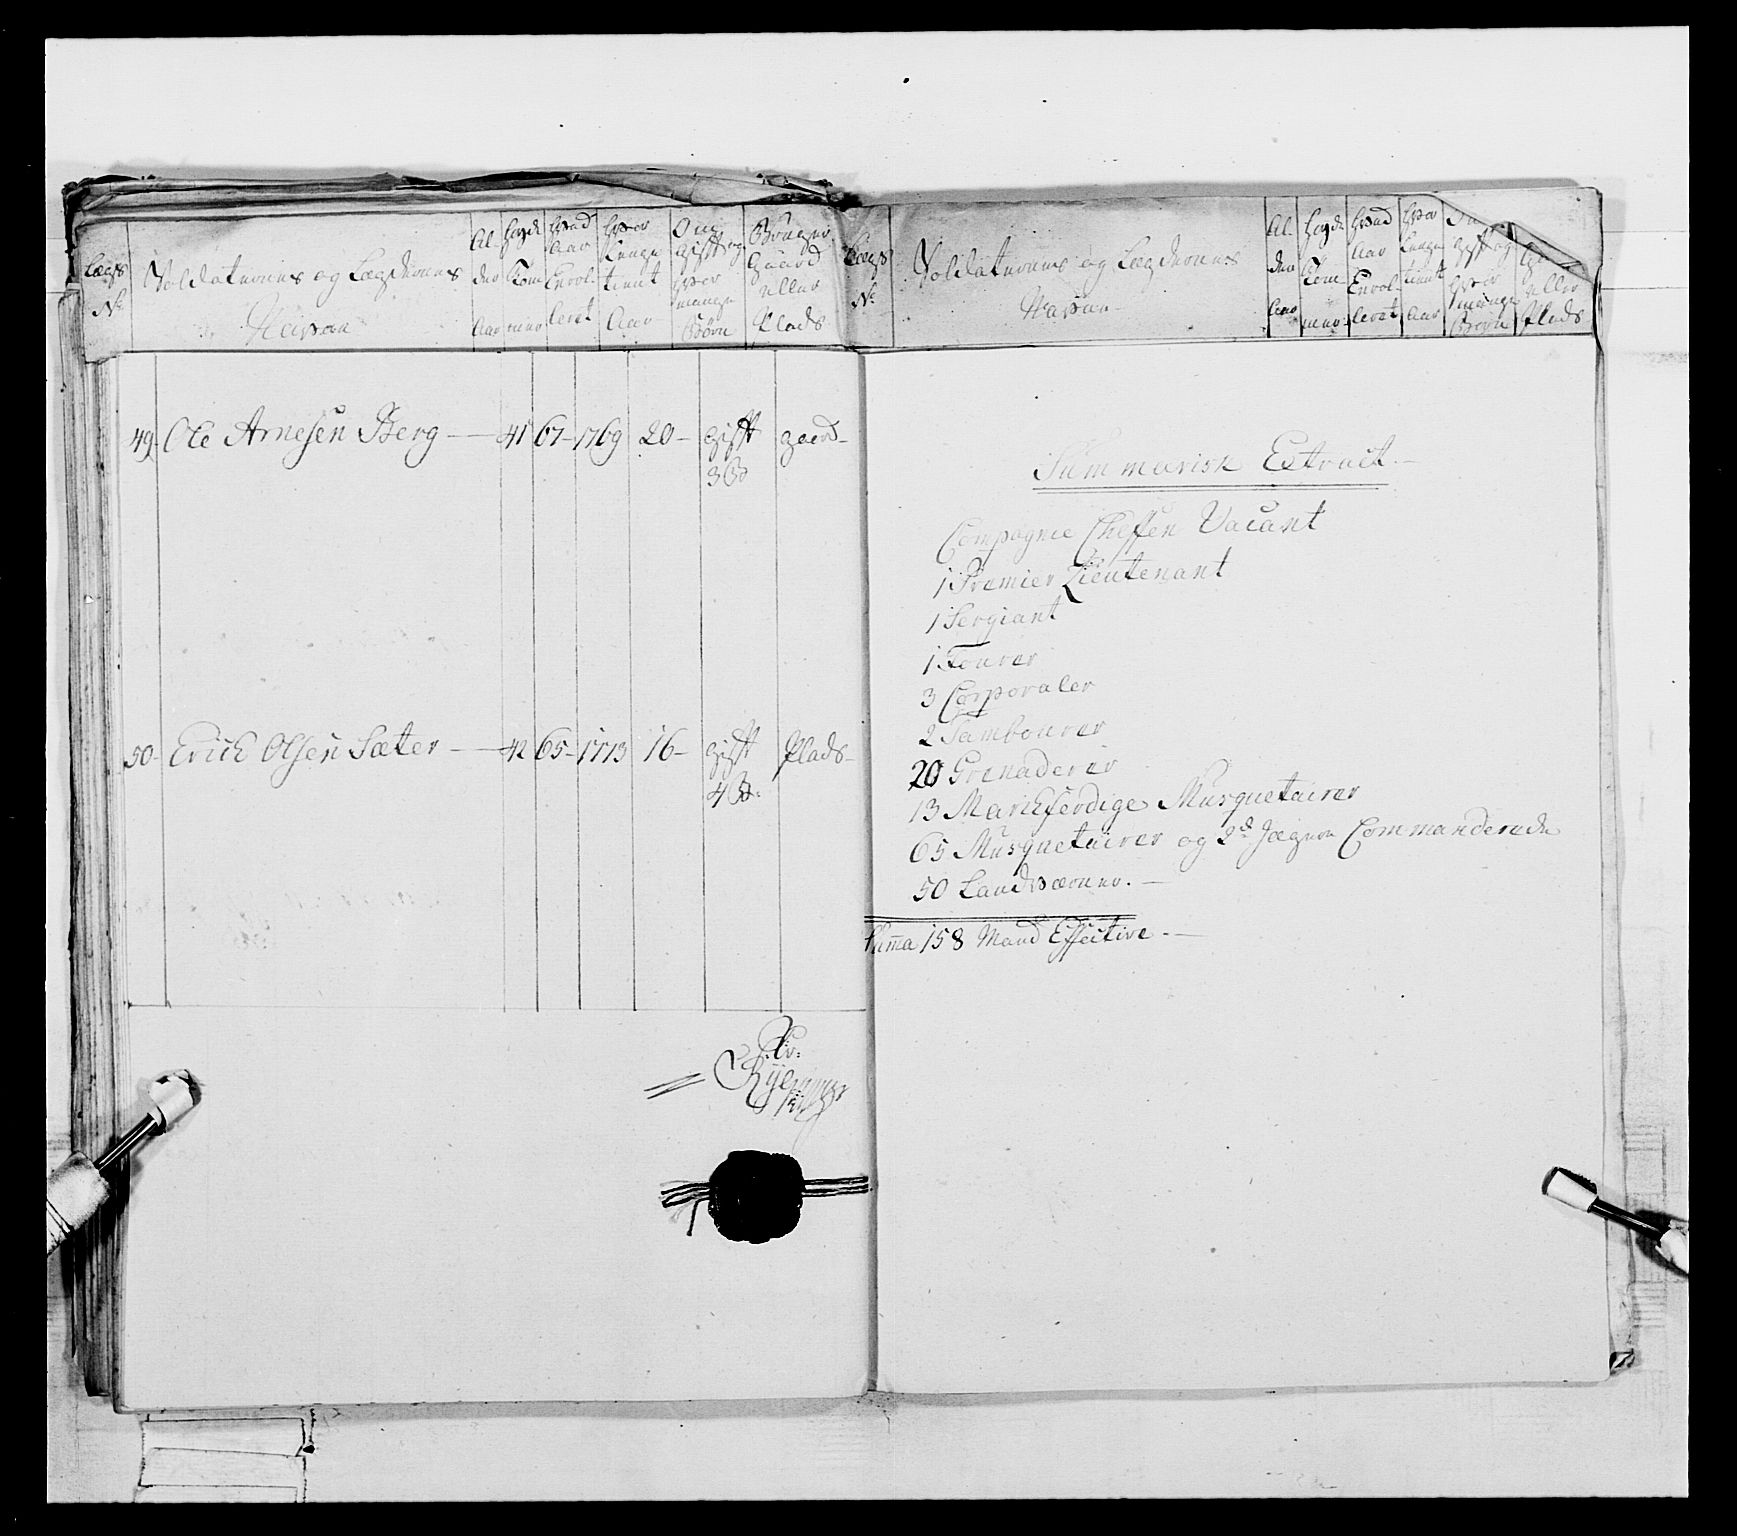 Lægs No
Soldaternes og Lægdernes Nafvne
Al- der Aar
Høyde Tom- mer
Hvad Aar Enrol- leret
Hvor lenge tient Aar
Om gift og hvor mange Børn
Bruger Gaard eller Plads
49 Ole Arnesen Berg — 41 67 - 1769 20 - gift gaard -
3 B:
50 - Erich Olsen Sæter — 42 65 - 1773 16 - gift Plads -
4 B:
Lægs No
Soldaternes og Lægdernes Nafvne
Al- der Aar
Høyde Tom- mer
Hvad Aar Enrol- leret
Hvor lenge tient Aar
gift og hvor mange Børn
eller Plads
Summarisk Extract
Compagnie Cheffen Vacant
1 Premier Lieutenant
1 Sergiant
1 Fourer
3 Corporaler
2 Tambourer
20 Grenaderer
13 Marchferdige Musquetairer
65 Musquetairer og 2de Jægere Commanderede
50 Landværner. —
Summa 158 Mand Effective. —